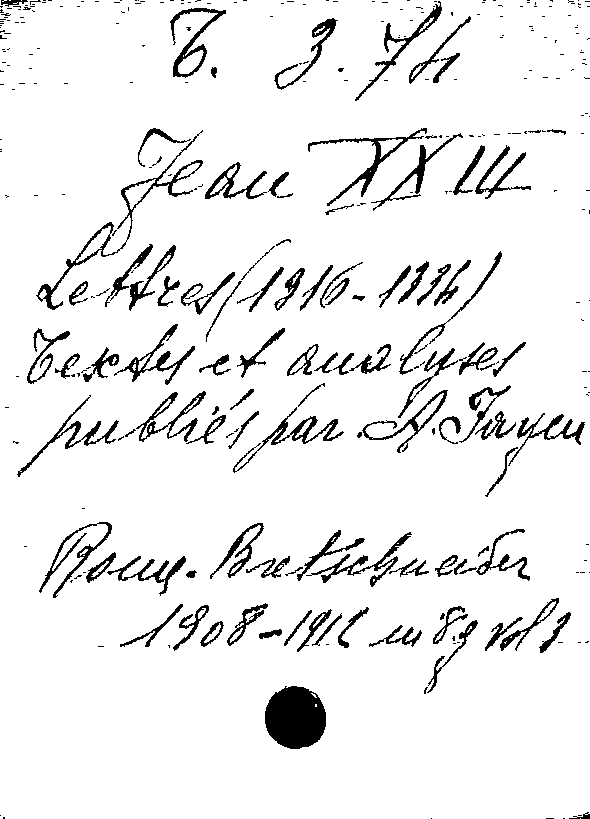 T. 3. 74
Jean XXIII
Lettres (1316-1334)
Textes et analyses
publiés par A. Fayen
Rome. Bretschneider
1908-1912 in 8º vol 2